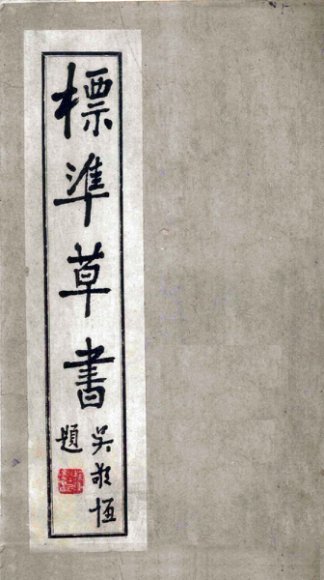 標準草書
吳敬恆
題